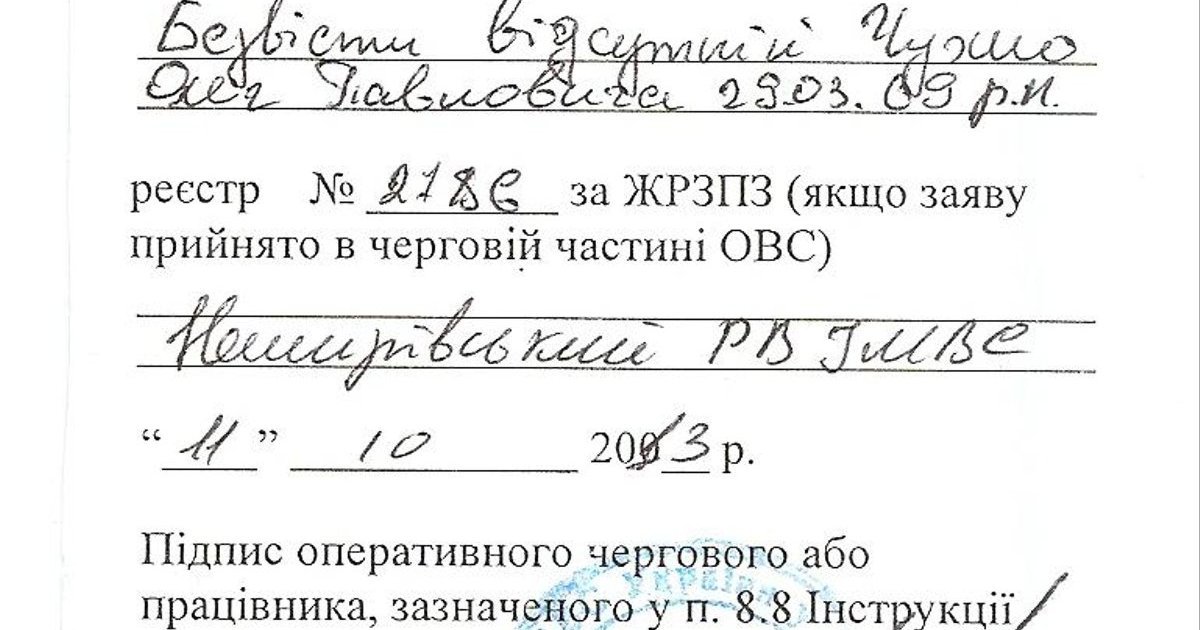 Безвісти відсутній Чухно
Олег Павловича 29.03.69 р.н.
реєстр № 2786 за ЖРЗПЗ (якщо заяву
прийнято в черговій частині ОВС)
Немирівський РВ УМВС
“ 11 ” 10 2013 р.
Підпис оперативного чергового або
працівника, зазначеного у п. 8.8 Інструкції